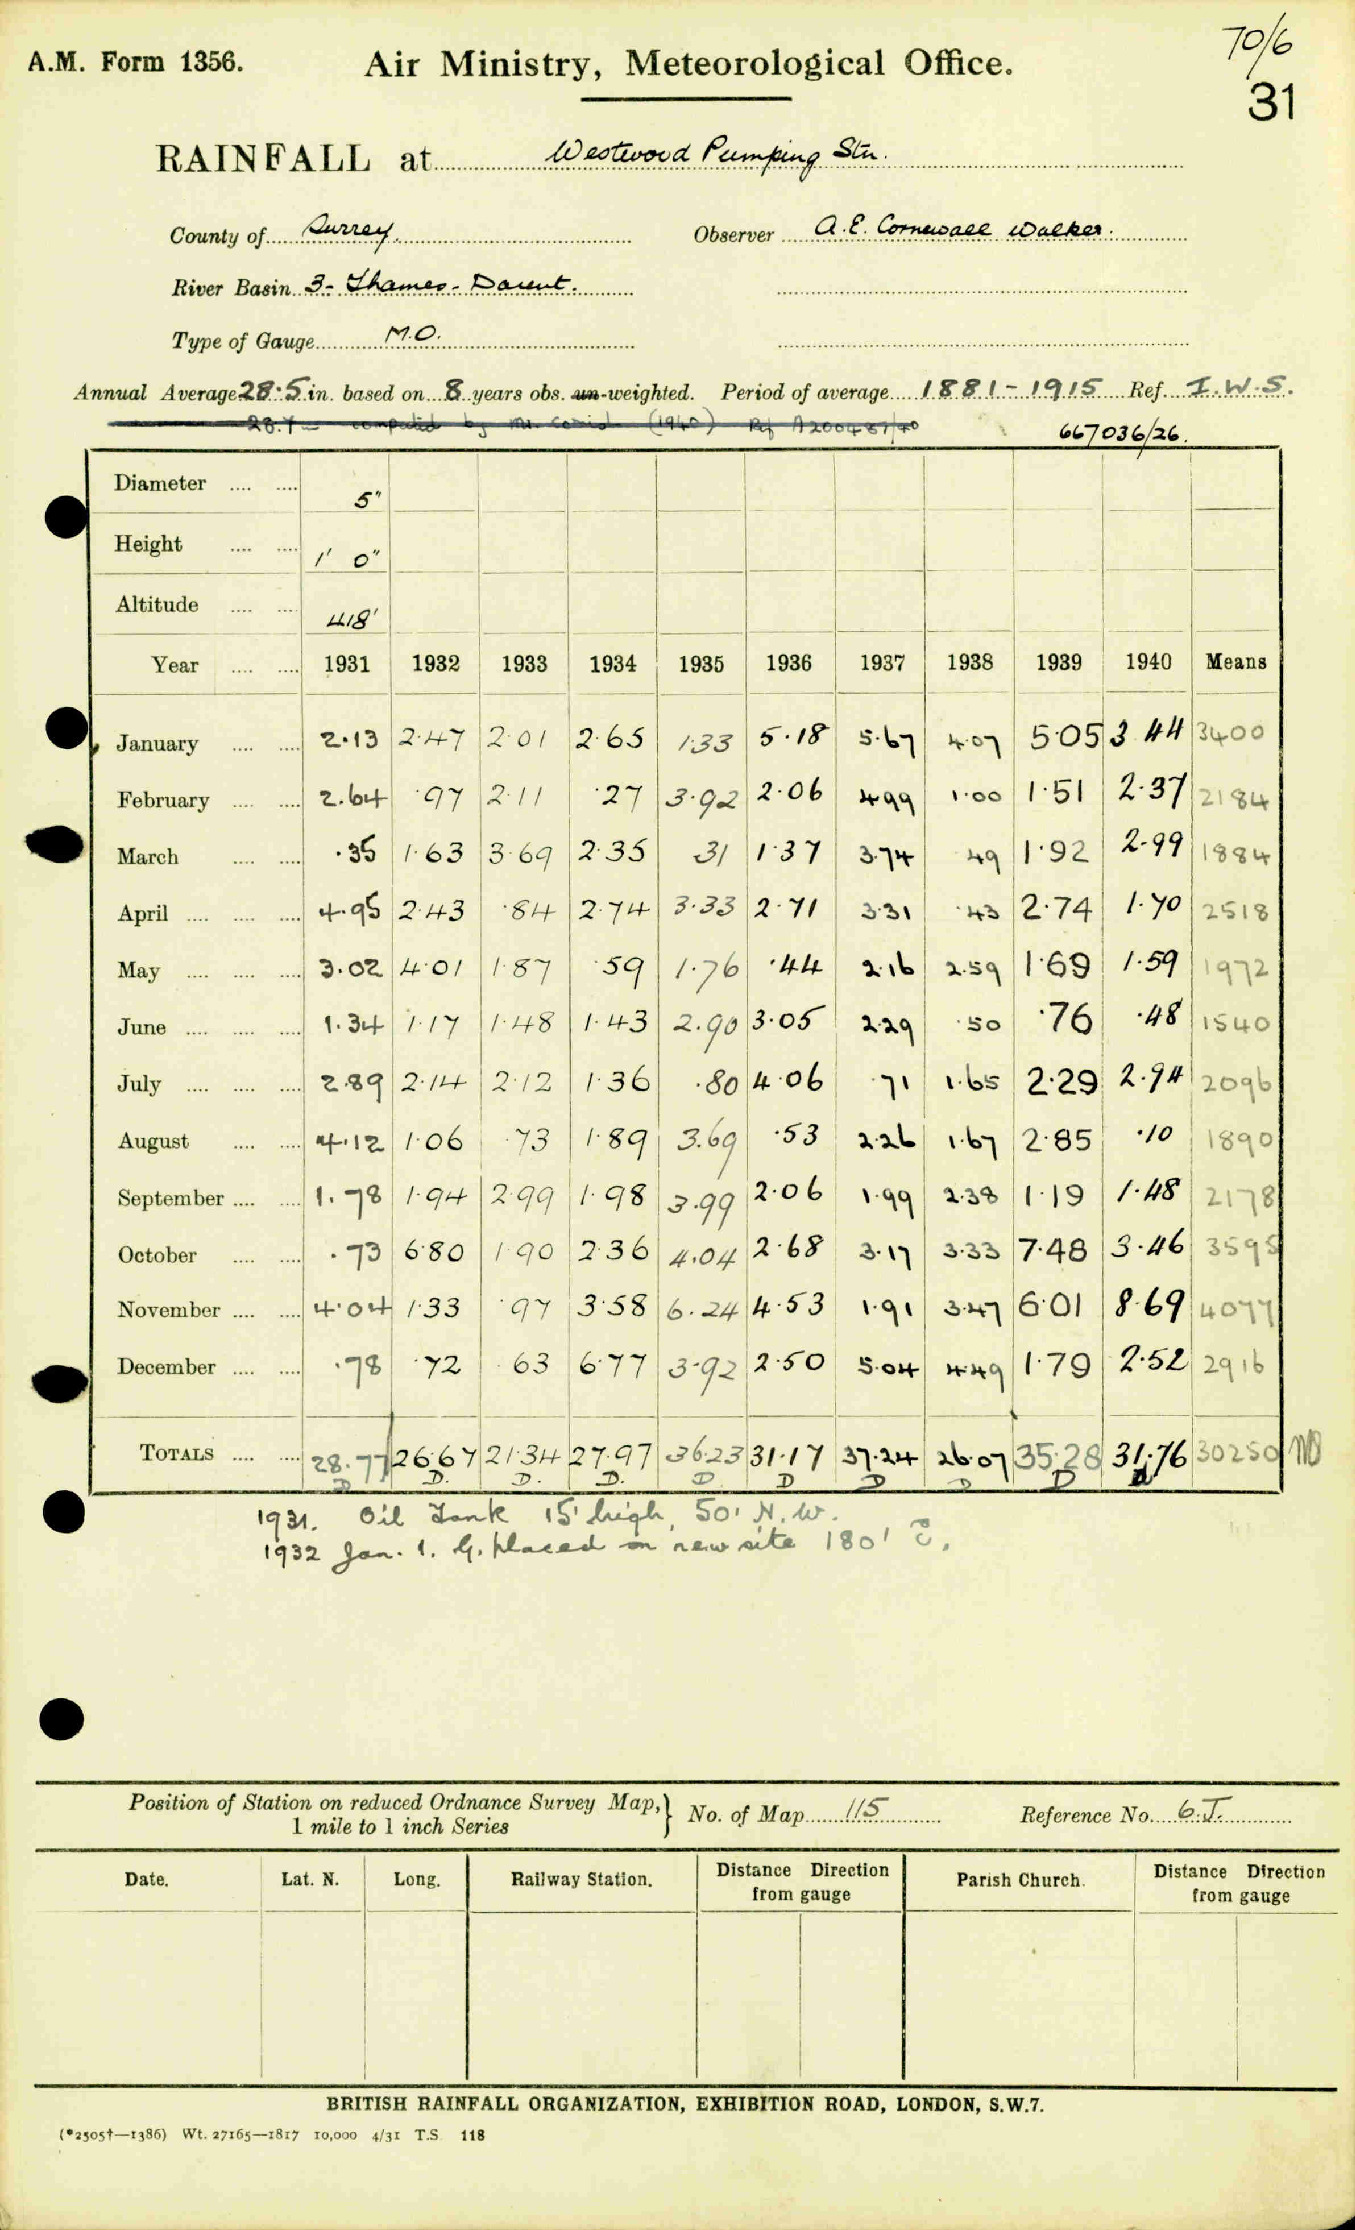 70/6
A.M. Form 1356. Air Ministry, Meteorological Office.
31
RAINFALL at Westwood Pumping Stn.
County of Surrey. Observer A.E. Cornewall Walker.
River Basin 3 - Thames - Darent.
Type of Gauge M.O.
Annual Average 28.5 in. based on 8 years obs. un-weighted. Period of average 1881-1915 Ref. I.W.S.
computed by Mr. (1940) Ref A200487/40 667036/26.
Diameter .... .... 5"
Height .... .... 1' 0"
Altitude .... .... 418'
Year .... .... 1931 1932 1933 1934 1935 1936 1937 1938 1939 1940 Means
January .... .... 2.13 2.47 2.01 2.65 1.33 5.18 5.67 4.07 5.05 3.44 3400
February .... .... 2.64 .97 2.11 .27 3.92 2.06 4.99 1.00 1.51 2.37 2184
March .... .... .35 1.63 3.69 2.35 31 1.37 3.74 49 1.92 2.99 1884
April .... .... .... 4.95 2.43 .84 2.74 3.33 2.71 3.31 .43 2.74 1.70 2518
May .... .... .... 3.02 4.01 1.87 .59 1.76 .44 2.16 2.59 1.69 1.59 1972
June .... .... .... 1.34 1.17 1.48 1.43 2.90 3.05 2.29 .50 .76 .48 1540
July .... .... .... 2.89 2.14 2.12 1.36 .80 4.06 .71 1.65 2.29 2.94 2096
August .... .... 4.12 1.06 .73 1.89 3.69 .53 2.26 1.67 2.85 .10 1890
September .... .... 1.78 1.94 2.99 1.98 3.99 2.06 1.99 2.38 1.19 1.48 2178
October .... .... .73 6.80 1.90 2.36 4.04 2.68 3.17 3.33 7.48 3.46 3595
November .... .... 4.04 1.33 .97 3.58 6.24 4.53 1.91 3.47 6.01 8.69 4077
December .... .... .78 .72 63 6.77 3.92 2.50 5.04 4.49 1.79 2.52 2916
TOTALS .... .... 28.77 26.67 21.34 27.97 36.23 31.17 37.24 26.07 35.28 31.76 30250
D D. D. D. D D D D D
1931. Oil Tank 15' high, 50' N.W.
1932 Jan. 1. G. placed on new site 180' E.
Position of Station on reduced Ordnance Survey Map, 1 mile to 1 inch Series } No. of Map 115 Reference No. 6.J.
Date. Lat. N. Long. Railway Station. Distance Direction from gauge Parish Church. Distance Direction from gauge
BRITISH RAINFALL ORGANIZATION, EXHIBITION ROAD, LONDON, S.W.7.
(*2505†—1386) Wt. 27165—1817 10,000 4/31 T.S. 118